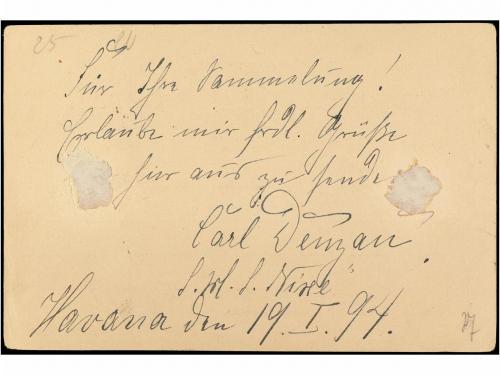 25
Für Ihre Sammelung!
Erlaube mir frdl. Grüße
hier aus zu sende
Carl Denzan.
S. M. S. Nixe"
Havana den 19. I. 94.